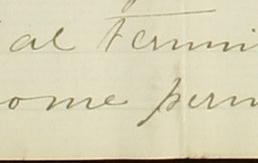 al termi
ome perm